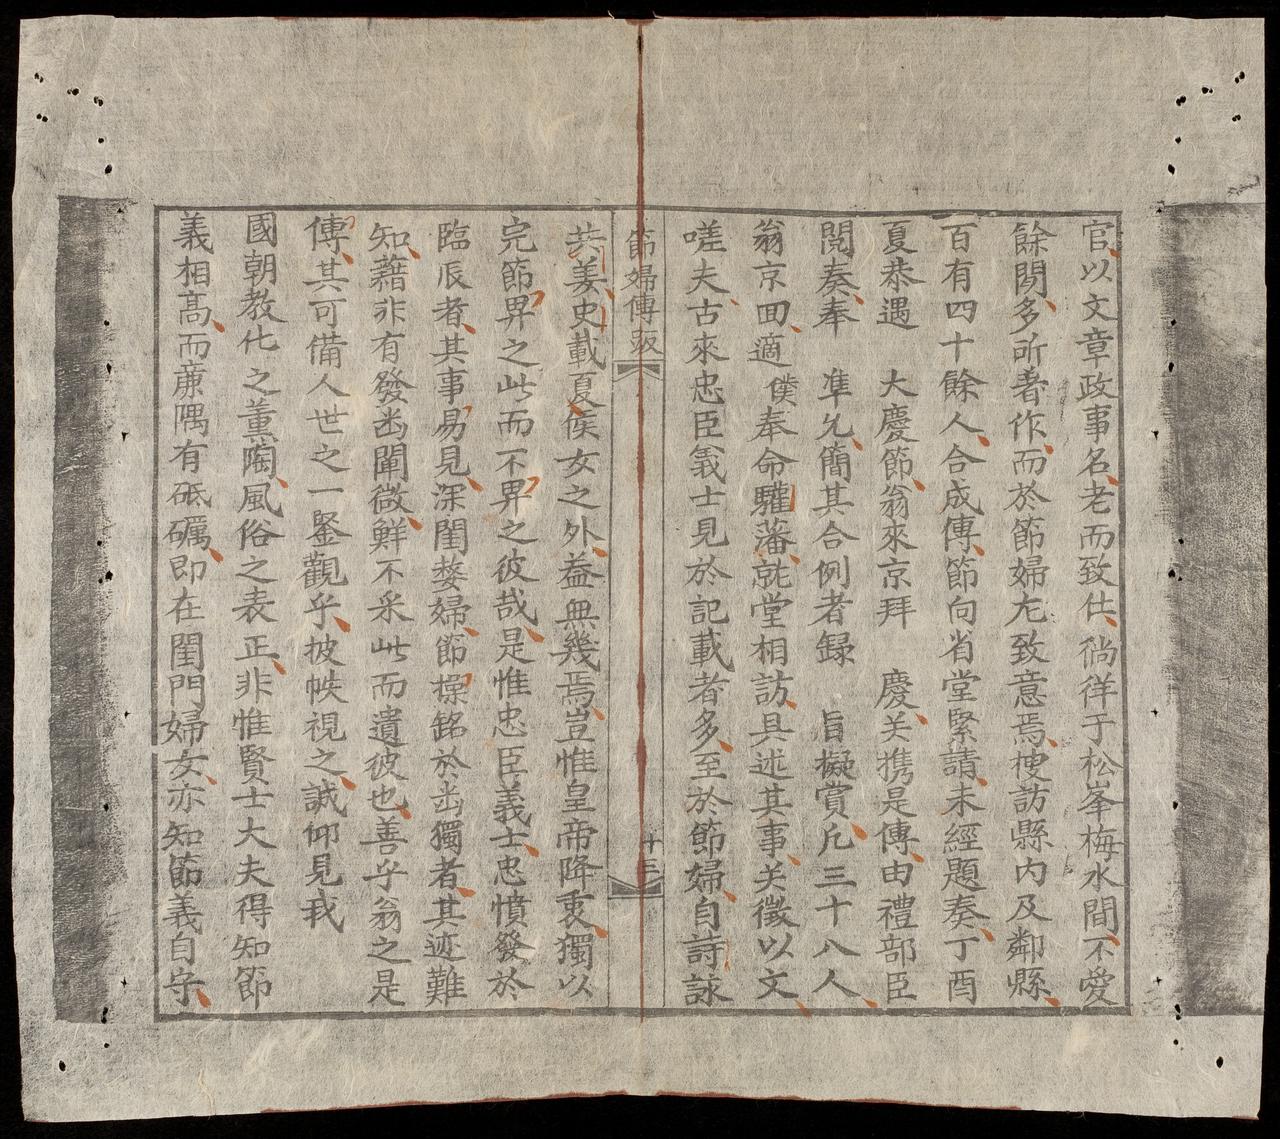 官以文章政事名老而致仕徜徉于松峯梅水間不愛
餘閒多所著作而於節婦尤致意焉梗訪縣內及鄰縣
百有四十餘人合成傳節向省堂緊請未經題奏丁酉
夏恭遇　大慶節翁來京拜　慶关携是傳由禮部臣
閲奏奉　準允簡其合例者録　旨擬賞凡三十八人
翁京回適僕奉命驩藩就堂相訪具述其事关徵以文
嗟夫古來忠臣義士見於記載者多至於節婦自詩詠
節婦傳跋　十三
共姜史載夏侯女之外葢無幾焉豈惟皇帝降衷獨以
完節畀之此而不畀之彼哉是惟忠臣義士忠憤發於
臨辰者其事易見深閨嫠婦節操銘於幽獨者其迹難
知藉非有發幽闡微鮮不采此而遺彼也善乎翁之是
傳其可備人世之一鍳觀乎披帙視之誠仰見我
國朝教化之薰陶風俗之表正非惟賢士大夫得知節
義相高而亷隅有砥礪即在閨門婦女亦知節義自守